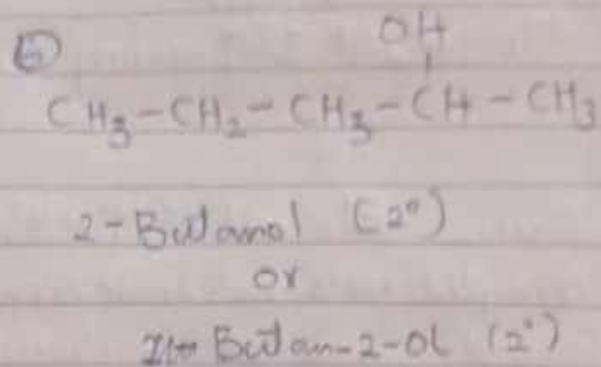 OH
CH₃-CH₂-CH₃-CH-CH₃
2-Butanol (2°)
or
Butan-2-OL (2°)